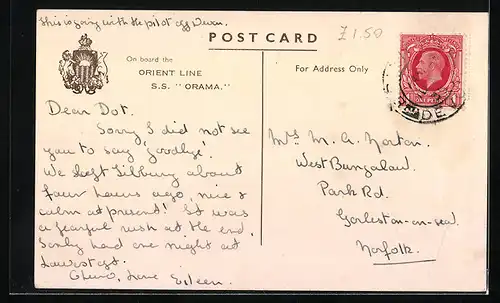 This is going with the pilot off Dover.
£1.50
POST CARD
On board the
ORIENT LINE
S.S. "ORAMA."
For Address Only
Dear Dot.
Sorry I did not see
you to say 'goodbye'.
We left Tilbury about
four hours ago, nice &
calm at present! It was
a fearful rush at the end,
I only had one night at
Lowestoft.
Cheerio, love Eileen.
Mrs M. A. Norton.
West Bungalow
Park Rd.
Gorleston-on-sea.
Norfolk.
ONE PENNY
DE